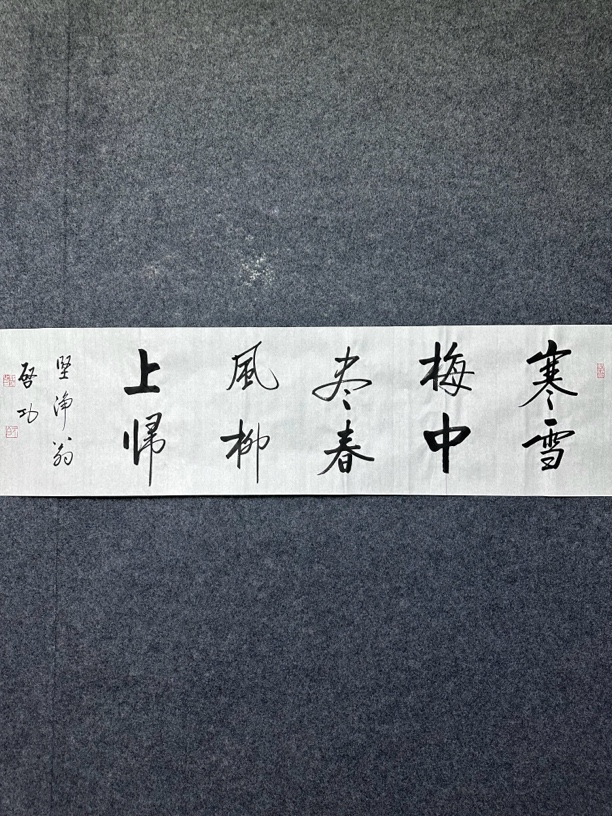 寒雪
梅中
尽春
風柳
上歸
堅淨翁
啓功